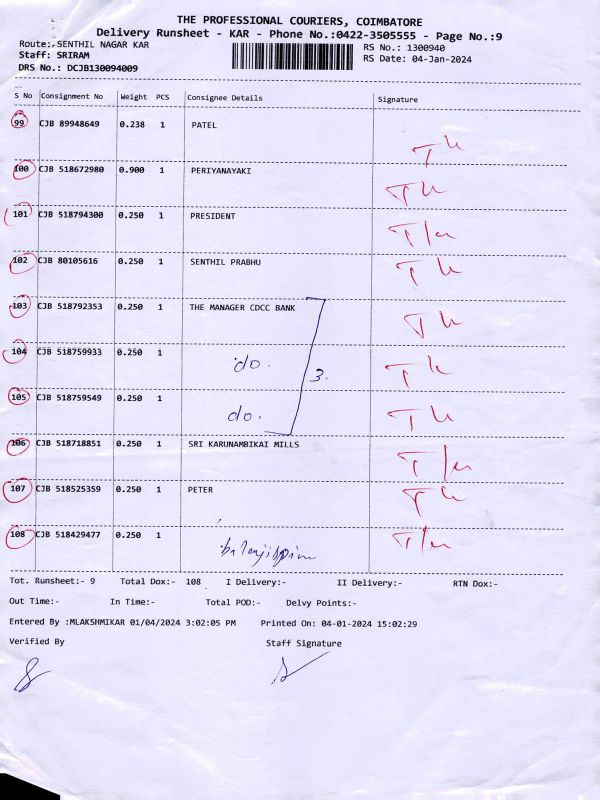 THE PROFESSIONAL COURIERS, COIMBATORE
Delivery Runsheet - KAR - Phone No.:0422-3505555 - Page No.:9
Route: SENTHIL NAGAR KAR RS No.: 1300940
Staff: SRIRAM RS Date: 04-Jan-2024
DRS No.: DCJB130094009
S No Consignment No Weight PCS Consignee Details Signature
99 CJB 89948649 0.238 1 PATEL
100 CJB 518672980 0.900 1 PERIYANAYAKI
101 CJB 518794300 0.250 1 PRESIDENT
102 CJB 80105616 0.250 1 SENTHIL PRABHU
103 CJB 518792353 0.250 1 THE MANAGER CDCC BANK
104 CJB 518759933 0.250 1 do. 3.
105 CJB 518759549 0.250 1 do.
106 CJB 518718851 0.250 1 SRI KARUNAMBIKAI MILLS
107 CJB 518525359 0.250 1 PETER
108 CJB 518429477 0.250 1
Tot. Runsheet:- 9 Total Dox:- 108 I Delivery:- II Delivery:- RTN Dox:-
Out Time:- In Time:- Total POD:- Delvy Points:-
Entered By :MLAKSHMIKAR 01/04/2024 3:02:05 PM Printed On: 04-01-2024 15:02:29
Verified By Staff Signature